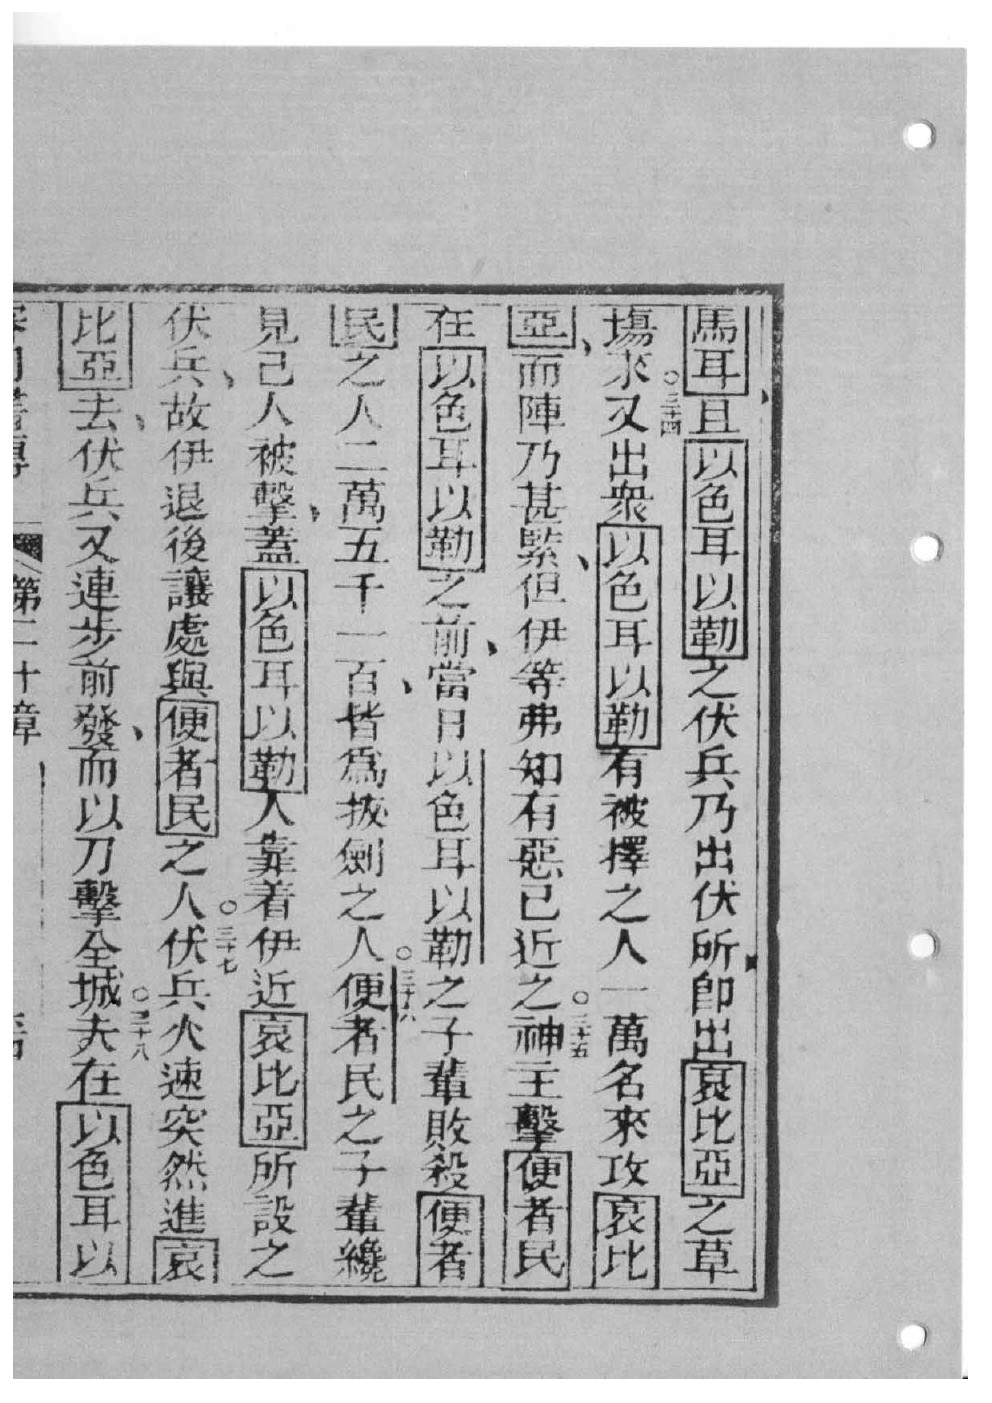 馬耳且以色耳以勒之伏兵乃出伏所卽出哀比亞之草
塲○三十四來又出衆以色耳以勒有被擇之人一萬名來攻哀比
亞而陣乃甚緊但伊等弗知有惡已近之○三十五神主擊便者民
在以色耳以勒之前當日以色耳以勒之子輩敗殺便者
民之人二萬五千一百皆爲拔劍之人○三十六便者民之子輩纔
見己人被擊蓋以色耳以勒人靠着伊近哀比亞所設之
伏兵故伊退後讓處與便者民之人○三十七伏兵火速突然進哀
比亞去伏兵又連步前發而以刀擊全城○三十八夫在以色耳以
第二十章